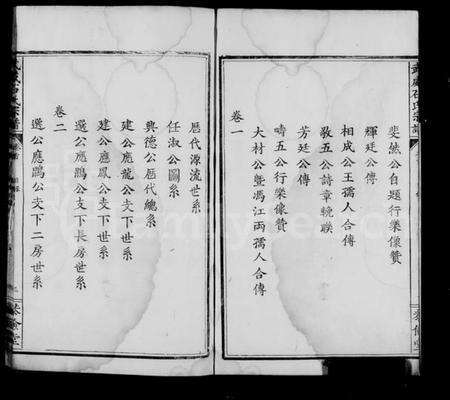 斐然公自題行樂像贊
輝廷公傳
相成公王孺人合傳
敬五公詩章輓聯
芳廷公傳
疇五公行樂像贊
大材公暨馮江兩孺人合傳
卷一
歷代源流世系
任淑公圖系
興德公歷代總系
建公應龍公支下世系
建公應鳳公支下世系
選公應鵬公支下長房世系
卷二
選公應鵬公支下二房世系